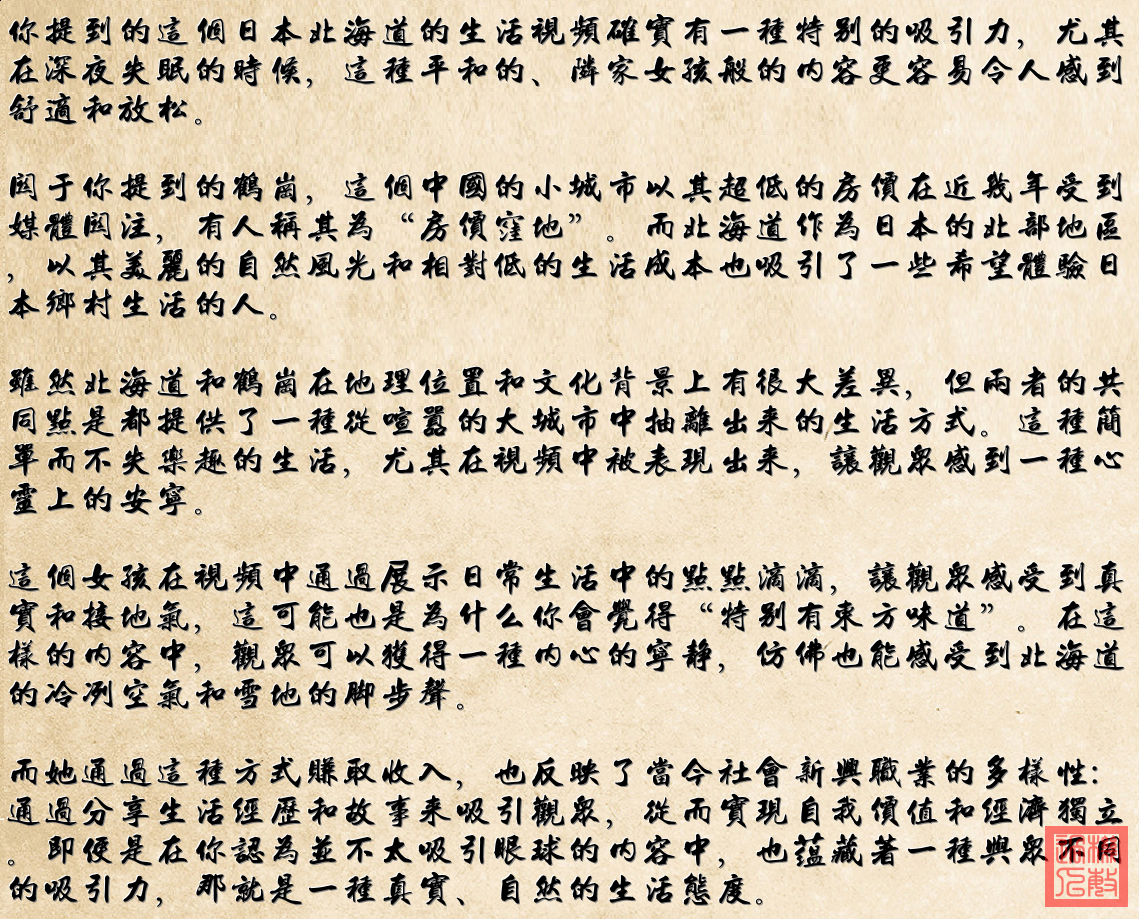 你提到的這個日本北海道的生活視頻確實有一種特别的吸引力，尤其
在深夜失眠的時候，這種平和的、隣家女孩般的内容更容易令人感到
舒適和放松。
関于你提到的鶴崗，這個中國的小城市以其超低的房價在近幾年受到
媒體関注，有人稱其為“房價窪地”。而北海道作為日本的北部地區
，以其美麗的自然風光和相對低的生活成本也吸引了一些希望體驗日
本鄉村生活的人。
雖然北海道和鶴崗在地理位置和文化背景上有很大差異，但兩者的共
同點是都提供了一種從喧囂的大城市中抽離出来的生活方式。這種簡
單而不失樂趣的生活，尤其在視頻中被表現出来，讓觀眾感到一種心
靈上的安寧。
這個女孩在視頻中通過展示日常生活中的點點滴滴，讓觀眾感受到真
實和接地氣，這可能也是為什么你會覺得“特别有東方味道”。在這
樣的内容中，觀眾可以獲得一種内心的寧静，仿佛也能感受到北海道
的冷冽空氣和雪地的脚步聲。
而她通過這種方式賺取收入，也反映了當今社會新興職業的多樣性：
通過分享生活經歷和故事来吸引觀眾，從而實現自我價值和經濟獨立
。即便是在你認為並不太吸引眼球的内容中，也蕴藏著一種與眾不同
的吸引力，那就是一種真實、自然的生活態度。